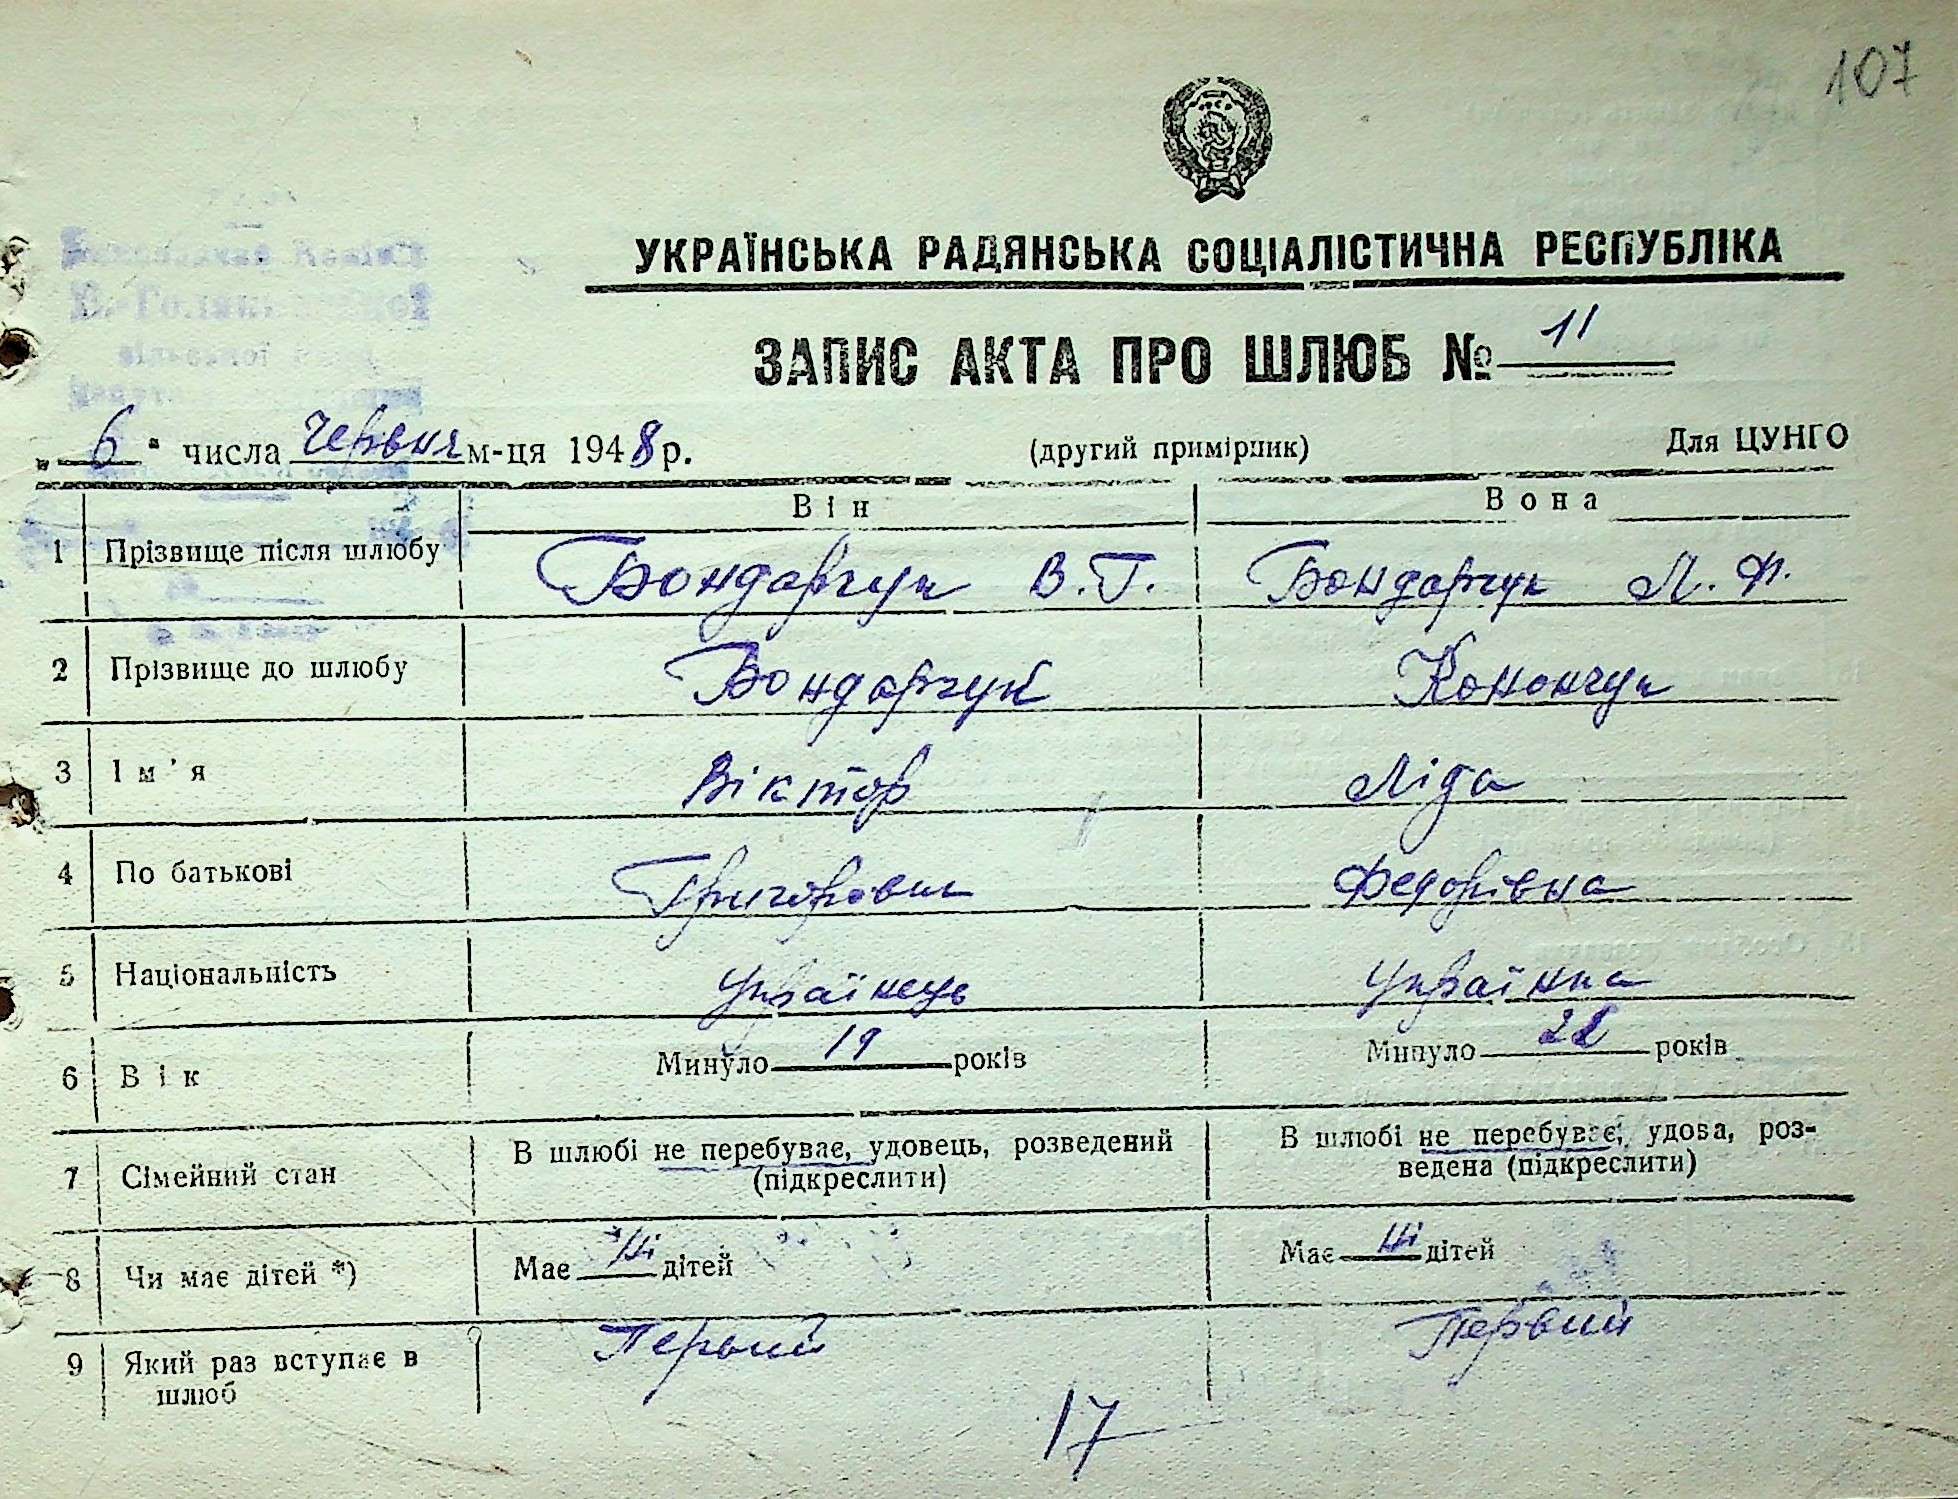 107
УКРАЇНСЬКА РАДЯНСЬКА СОЦІАЛІСТИЧНА РЕСПУБЛІКА
ЗАПИС АКТА ПРО ШЛЮБ № 11
„6“ числа червня м-ця 1948 р. (другий примірник) Для ЦУНГО
Він Вона
1 Прізвище після шлюбу Бондарчук В.Г. Бондарчук Л.Ф.
2 Прізвище до шлюбу Бондарчук Конончук
3 Ім'я Віктор Ліда
4 По батькові Григорович Федорівна
5 Національність Українець Українка
6 Вік Минуло 19 років Минуло років
7 Сімейний стан В шлюбі не перебуває, удовець, розведений (підкреслити) В шлюбі не перебуває, удова, роз-
ведена (підкреслити)
8 Чи має дітей *) Має ні дітей Має ні дітей
9 Який раз вступає в шлюб Первий Первий
17